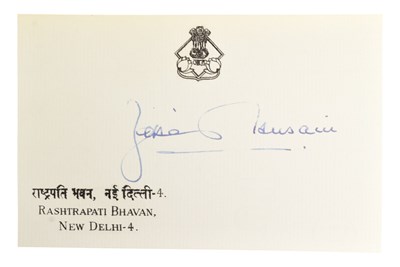 Zakir Husain
राष्ट्रपति भवन, नई दिल्ली-4.
RASHTRAPATI BHAVAN,
NEW DELHI-4.